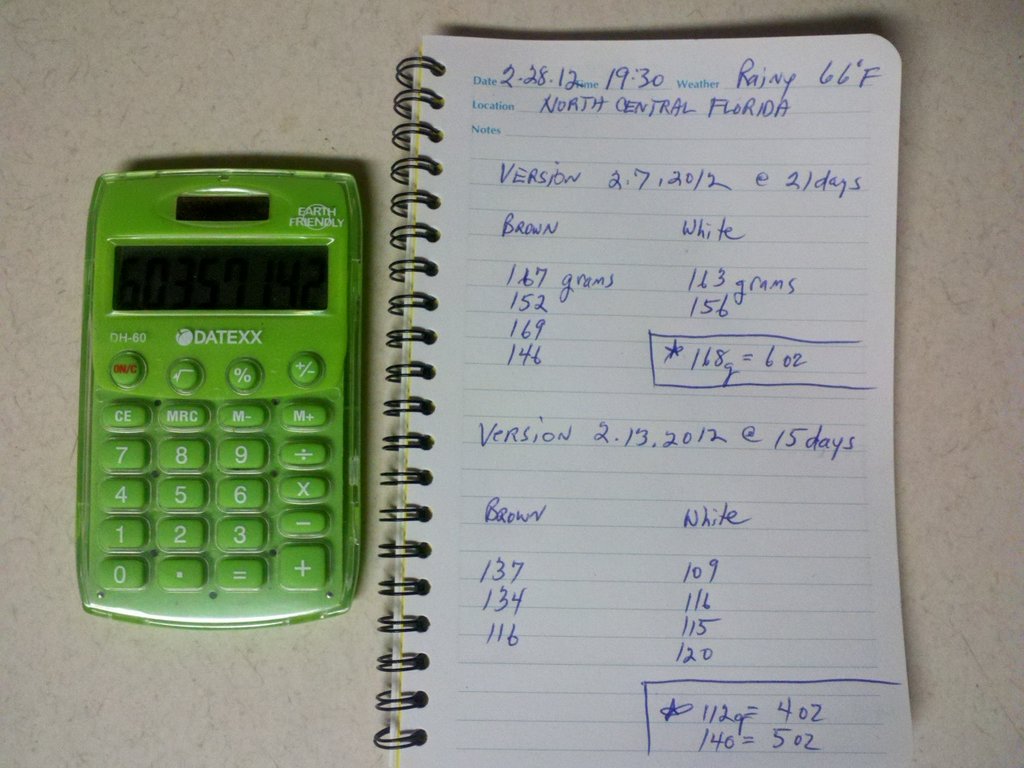 EARTH
FRIENDLY
6.0357142
DH-60 DATEXX
ON/C √ % +/−
CE MRC M- M+
7 8 9 ÷
4 5 6 X
1 2 3 −
0 . = +
Date 2.28.12 Time 19:30 Weather Rainy 66°F
Location NORTH CENTRAL FLORIDA
Notes
VERSION 2.7.2012 @ 21 days
BROWN White
167 grams 163 grams
152 156
169
146 * 168g = 6 oz
VERSION 2.13.2012 @ 15 days
BROWN White
137 109
134 116
116 115
120
* 112g = 4 oz
140 = 5 oz